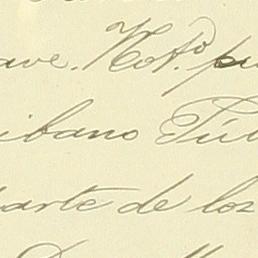 ave. Not.º pu
ibano Púb
parte de los